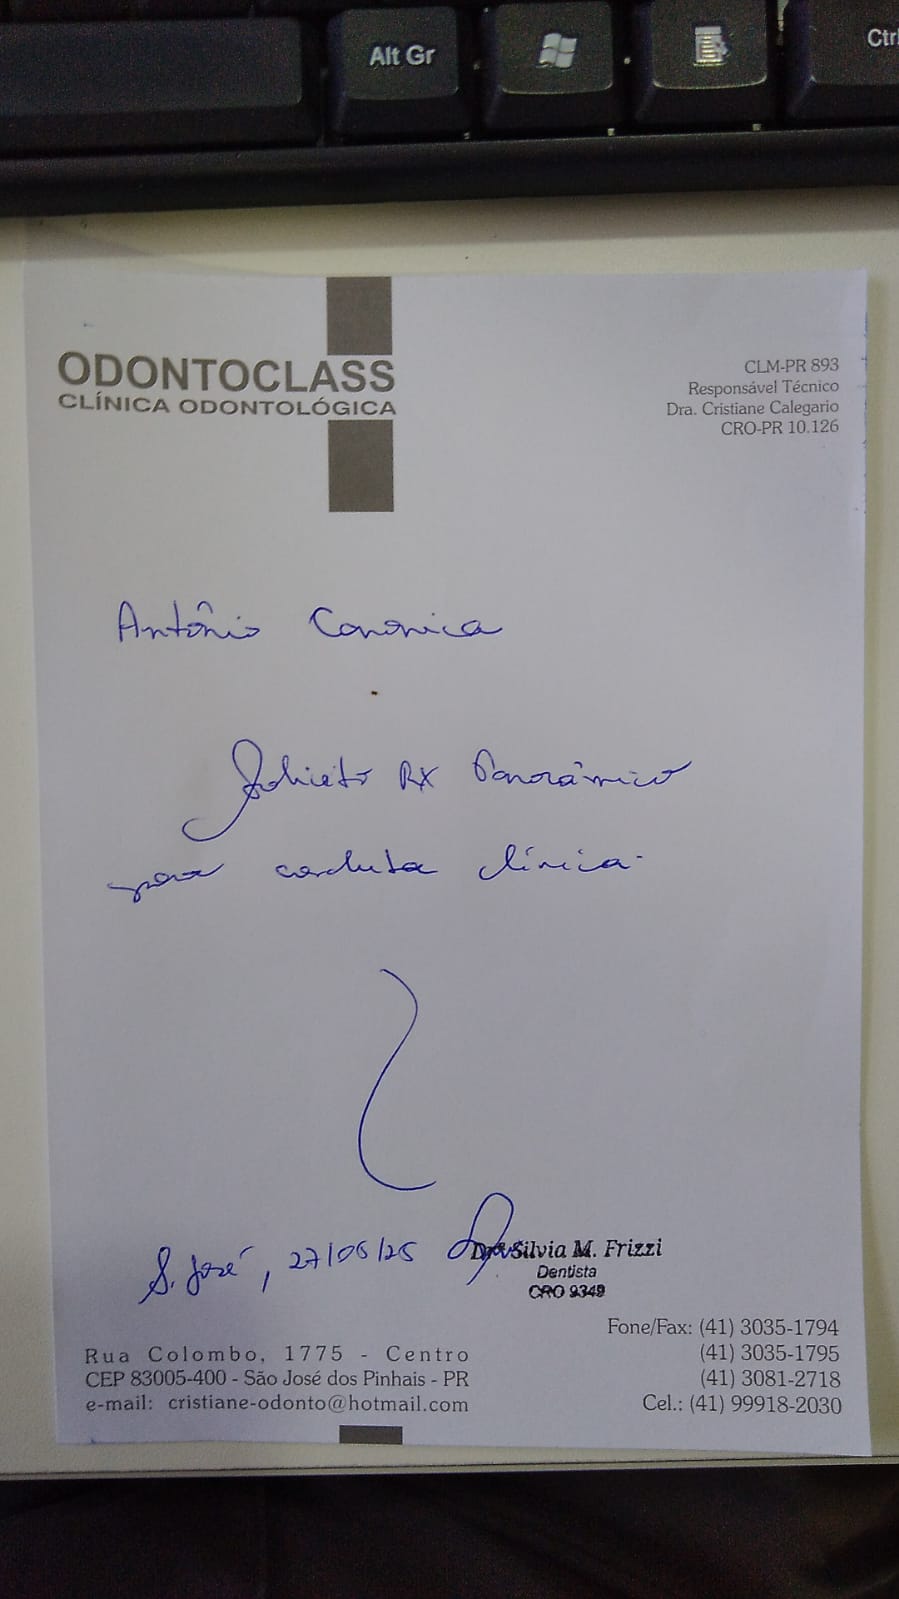 Alt Gr
Ctrl
ODONTOCLASS
CLÍNICA ODONTOLÓGICA
CLM-PR 893
Responsável Técnico
Dra. Cristiane Calegario
CRO-PR 10.126
Antônio Canonica
Solicito RX Panorâmico
para conduta clínica.
S. José, 27/05/25
Dra. Silvia M. Frizzi
Dentista
CRO 9349
Rua Colombo, 1775 - Centro
CEP 83005-400 - São José dos Pinhais - PR
e-mail: cristiane-odonto@hotmail.com
Fone/Fax: (41) 3035-1794
(41) 3035-1795
(41) 3081-2718
Cel.: (41) 99918-2030